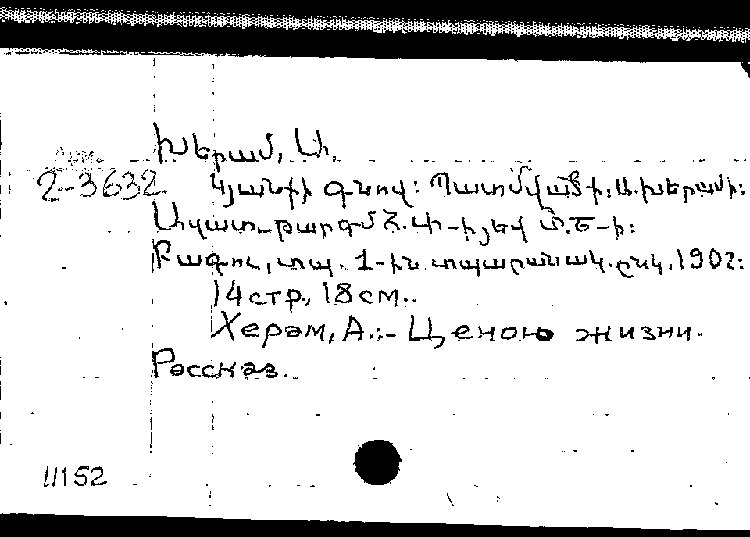 Խերամ, Ա.
Арм.
2-3632 Կյանքի գնով: Պատմվածք, Ա. Խերամի:
Ազատ-թարգմ Հ. Փ-ի, եվ Տ. Ե-ի:
Բագու, տպ. 1-ին տպարանակ. ընկ. 1902:
14 стр., 18 см..
Херам, А.:- Ценою жизни.
Рассказ.
11152